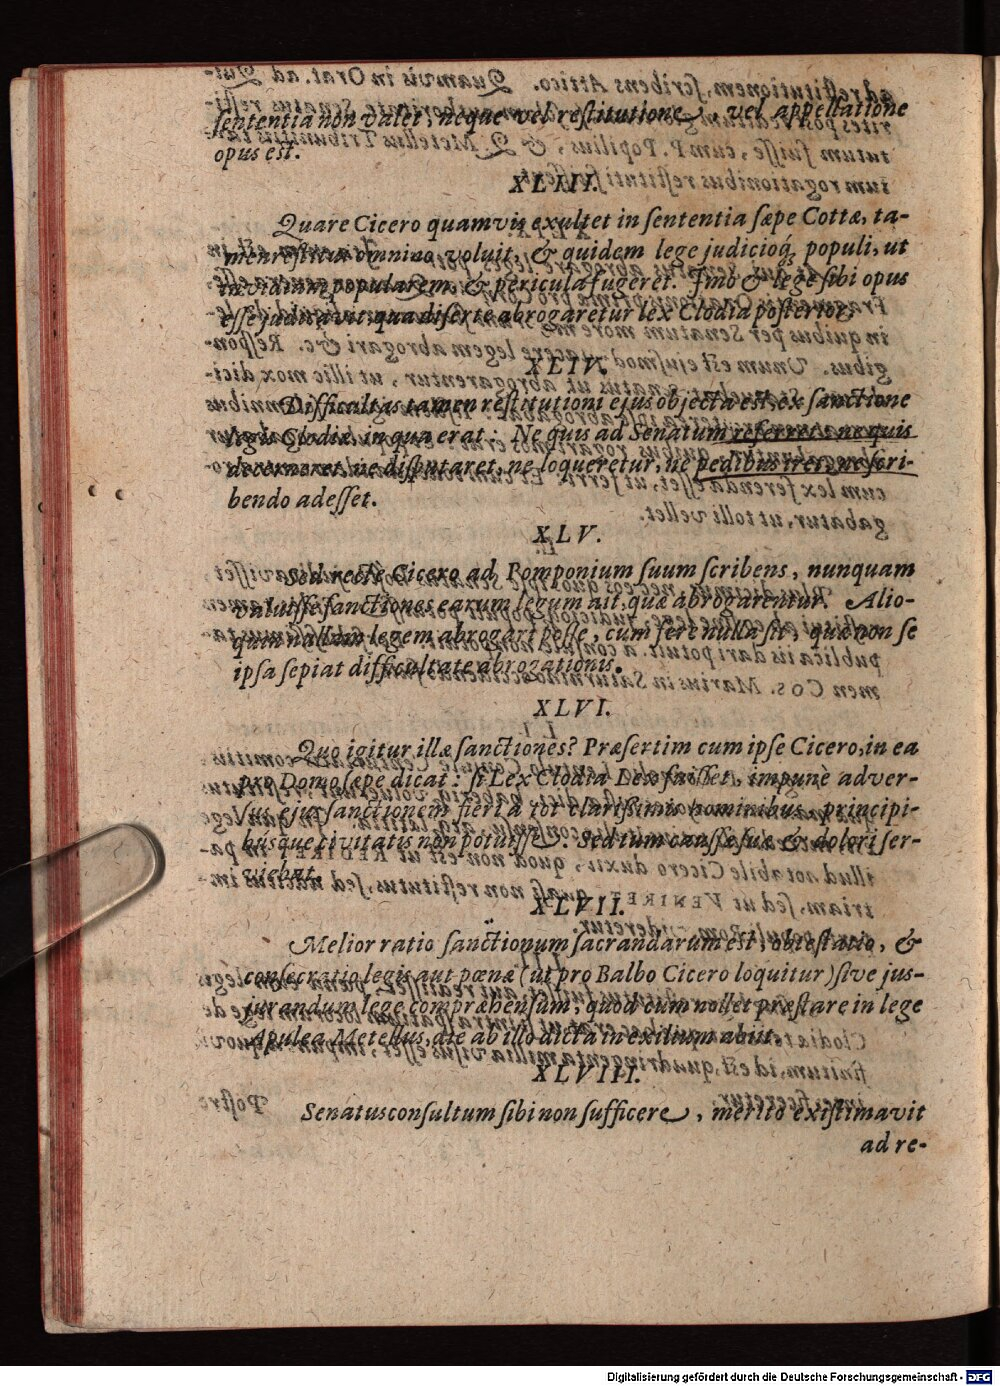 sententia non valet, neque vel restitutione, vel appellatione
opus est.
XLIII.
Quare Cicero quamvis exultet in sententia sæpe Cottæ, ta-
men restitui omnino voluit, & quidem lege judicioq́; populi, ut
invidiam popularem & pericula fugeret. Imò & lege sibi opus
esse judicavit, qua disertè abrogaretur lex Clodia posterior.
XLIV.
Difficultas tamen restitutioni ejus objecta est, ex sanctione
legis Clodiæ, in qua erat: Ne quis ad Senatum referret, ne quis
decerneret, ne disputaret, ne loqueretur, ne pedibus iret, ne scri-
bendo adesset.
XLV.
Sed rectè Cicero ad Pomponium suum scribens, nunquam
valuisse sanctiones earum legum ait, quæ abrogarentur. Alio-
quin nullam legem abrogari posse, cum ferè nulla sit, quæ non se
ipsa sepiat difficultate abrogationis.
XLVI.
Quo igitur illæ sanctiones? Præsertim cum ipse Cicero, in ea
pro Domo sæpe dicat: si Lex Clodia Lex fuisset, impunè adver-
sus ejus sanctionem fieri à tot clarißimis hominibus, principi-
búsque civitatis non potuisse. Sed tum caussæ suæ & dolori ser-
viebat.
XLVII.
Melior ratio sanctionum sacrandarum est, obtestatio, &
consecratio legis aut pœnæ (ut pro Balbo Cicero loquitur) sive jus-
jurandum lege comprehensum, quod cum nollet præstare in lege
Apulea Metellus, die ab illo dicta in exilium abiit.
XLVIII.
Senatusconsultum sibi non sufficere, meritò existimavit
ad re-
Digitalisierung gefördert durch die Deutsche Forschungsgemeinschaft - DFG